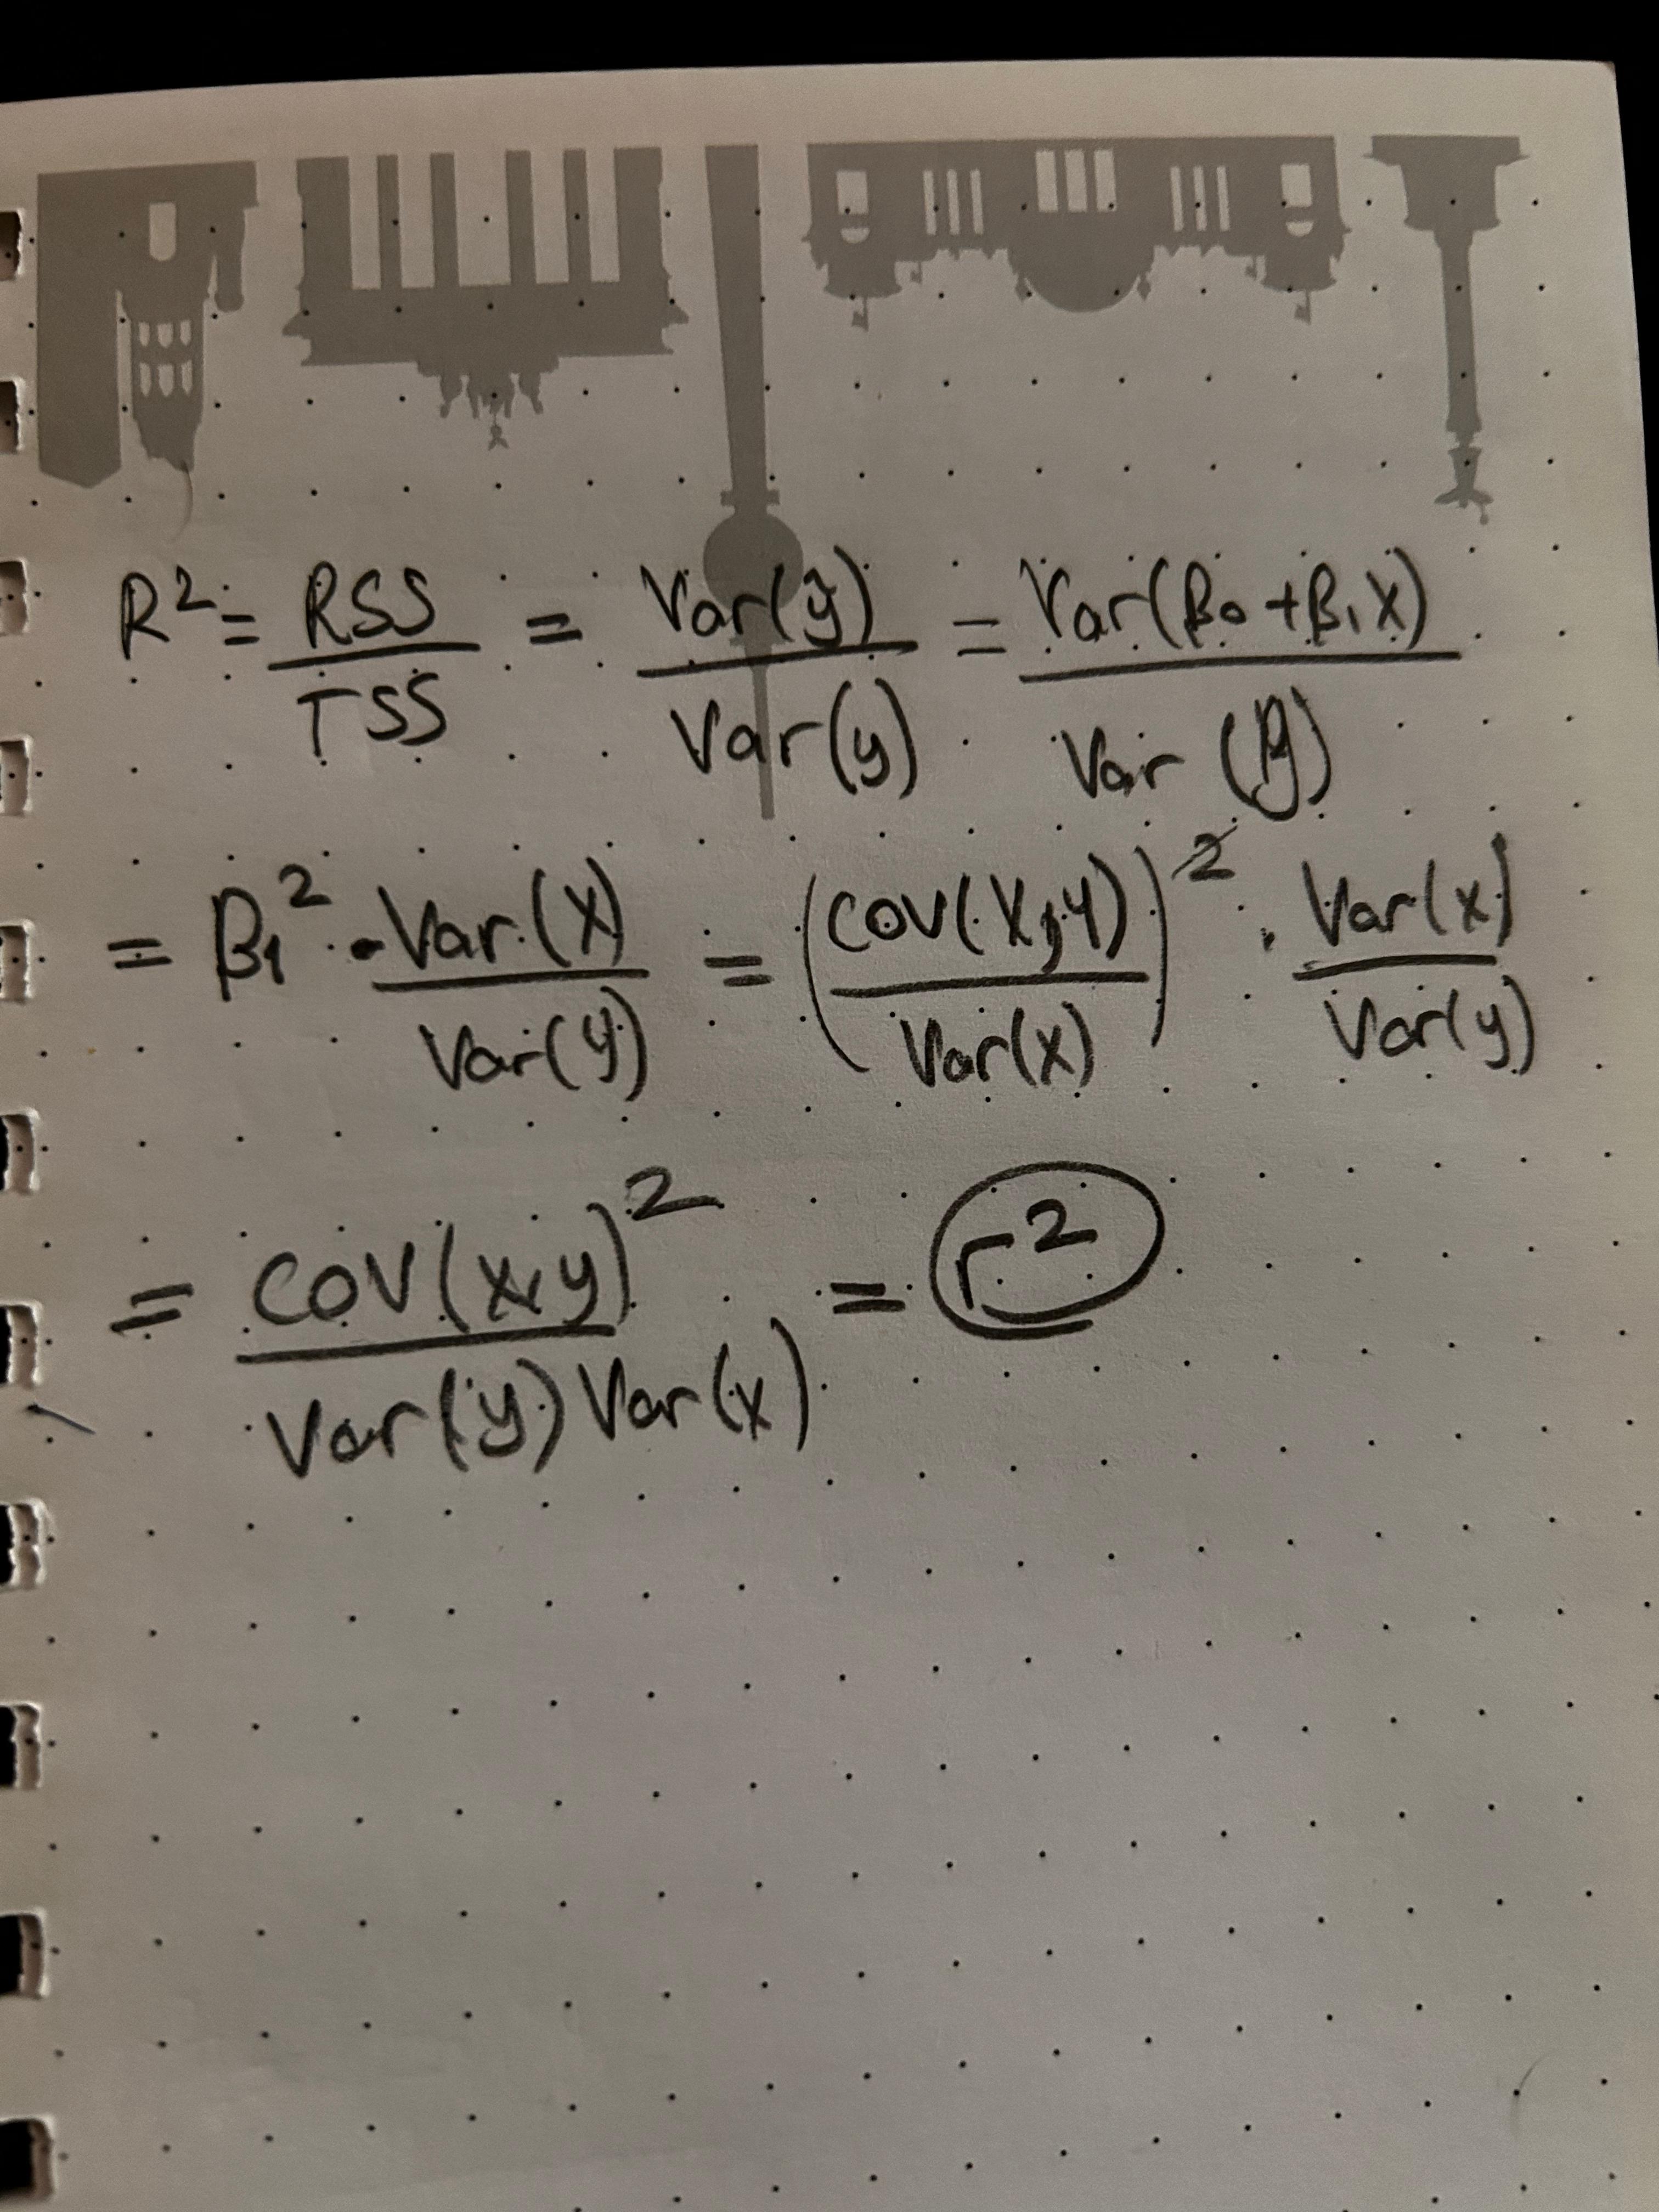 R² = RSS / TSS = Var(ŷ) / Var(y) = Var(β₀ + β₁X) / Var(y)
= β₁² · Var(X) / Var(y) = (COV(X,y) / Var(X))² · Var(x) / Var(y)
= COV(x,y)² / Var(y) Var(x) = r²